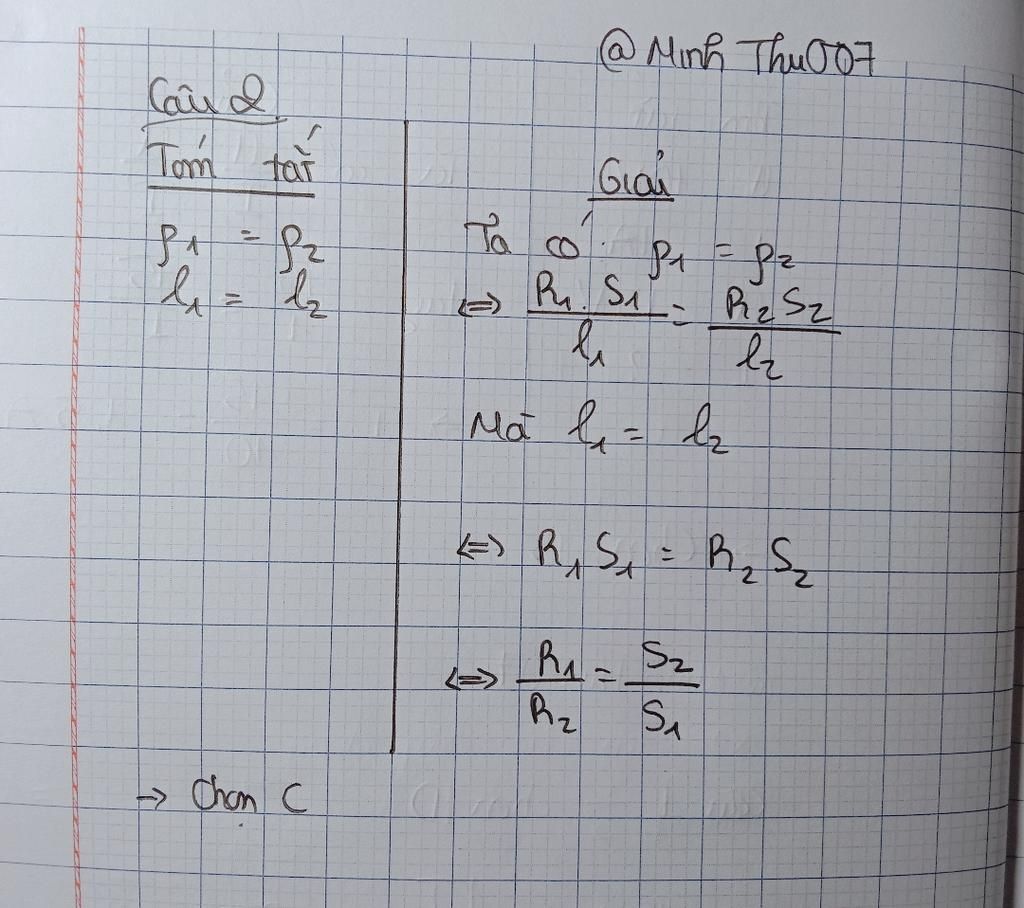 @ Minh Thu007
Câu 2
Tóm tắt
ρ1 = ρ2
l1 = l2
Giải
Ta có: ρ1 = ρ2
<=> R1.S1/l1 = R2S2/l2
Mà l1 = l2
<=> R1S1 = R2S2
<=> R1/R2 = S2/S1
-> Chọn C